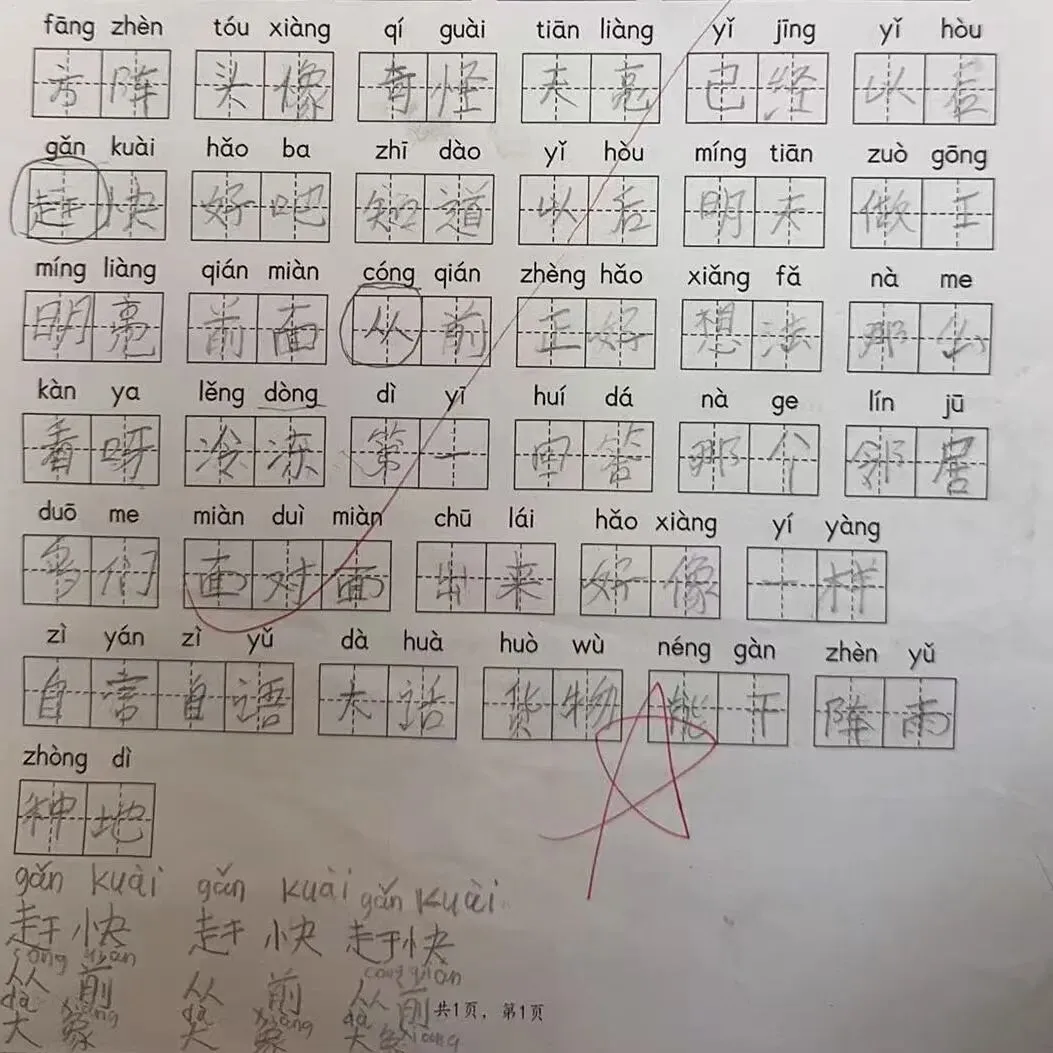 fāng zhèn tóu xiàng qí guài tiān liàng yǐ jīng yǐ hòu
方阵 头像 奇怪 天亮 已经 以后
gǎn kuài hǎo ba zhī dào yǐ hòu míng tiān zuò gōng
赶快 好吧 知道 以后 明天 做工
míng liàng qián miàn cóng qián zhèng hǎo xiǎng fǎ nà me
明亮 前面 从前 正好 想法 那么
kàn ya lěng dòng dì yī huí dá nà ge lín jū
看呀 冷冻 第一 回答 那个 邻居
duō me miàn duì miàn chū lái hǎo xiàng yí yàng
多们 面对面 出来 好像 一样
zì yán zì yǔ dà huà huò wù néng gàn zhèn yǔ
自言自语 大话 货物 能干 阵雨
zhòng dì
种地
gǎn kuài gǎn kuài gǎn kuài
赶快 赶快 赶快
cóng qián cóng qián
从前 从前 从前
dà xiàng dà xiàng dà xiàng
大象 大象 大象
共1页，第1页